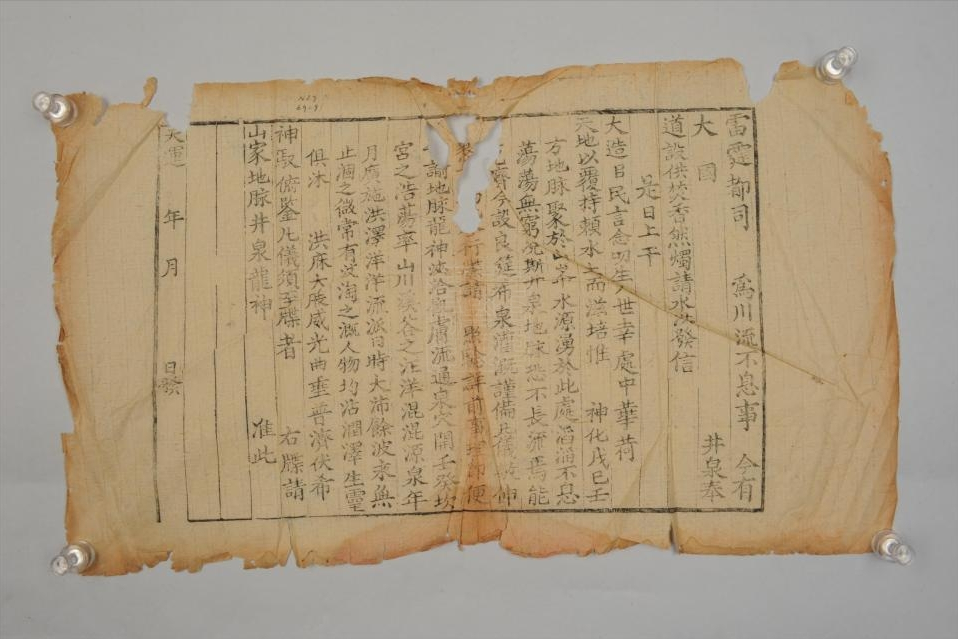 雷霆都司　為川流不息事　今有
大　國　井泉奉
道設供焚香然燭請水洪發信
是日上干
大造日民言念叨生人世幸處中華荷
天地以覆持賴水而滋培惟　神化戊己壬
方地脉聚於山水源湧於此處滔滔不息
蕩蕩無窮況斯井泉地脉恐不長流焉能
濟今設良筵布泉灌溉謹備凡儀
行牒請　照驗詳前事理即便
諭地脉龍神流通泉穴開壬癸坎
宮之浩蕩率山川溪谷之汪洋混混源泉年
月廣施洪澤洋洋流派日時大沛餘波永無
止涸之微常有浚淘之溉人物均沾潤澤生靈
俱沐　洪庥大展威光曲垂普濟伏希
神馭俯鑒凡儀須至牒者　右牒請
山家地脉井泉龍神　准此
天運　年　月　日發